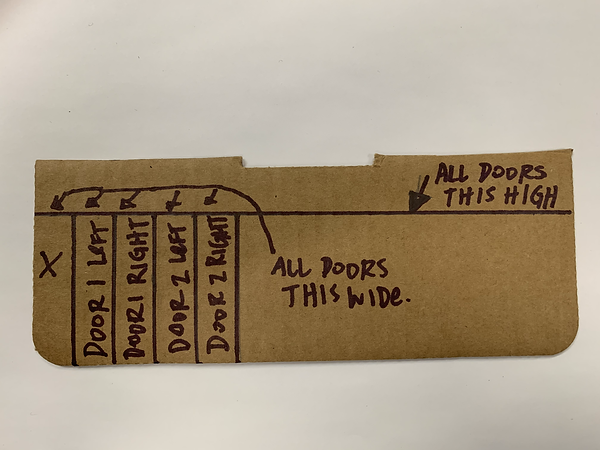 ALL DOORS
THIS HIGH
X
DOOR 1 LEFT
DOOR 1 RIGHT
DOOR 2 LEFT
DOOR 2 RIGHT
ALL DOORS
THIS WIDE.